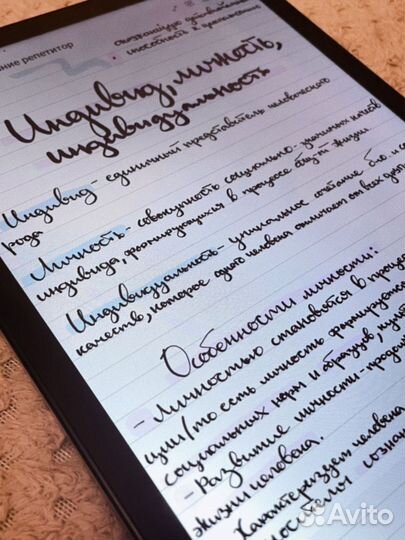 ние репетитор
способность к
Индивид, личность,
индивидуальность
Индивид - единичный представитель человеческого
рода
Личность - совокупность социально-значимых качеств
индивида, формирующихся в процессе общ-й жизни.
Индивидуальность - уникальное сочетание био. и со
качеств, которое одного человека отличает от всех
Особенности личности:
- Личностью становится в процес
ции/то есть личность формируется
социальных норм и образцов,
- Развитие личности -
жизни человека.
Характеризует человека
созна
Avito